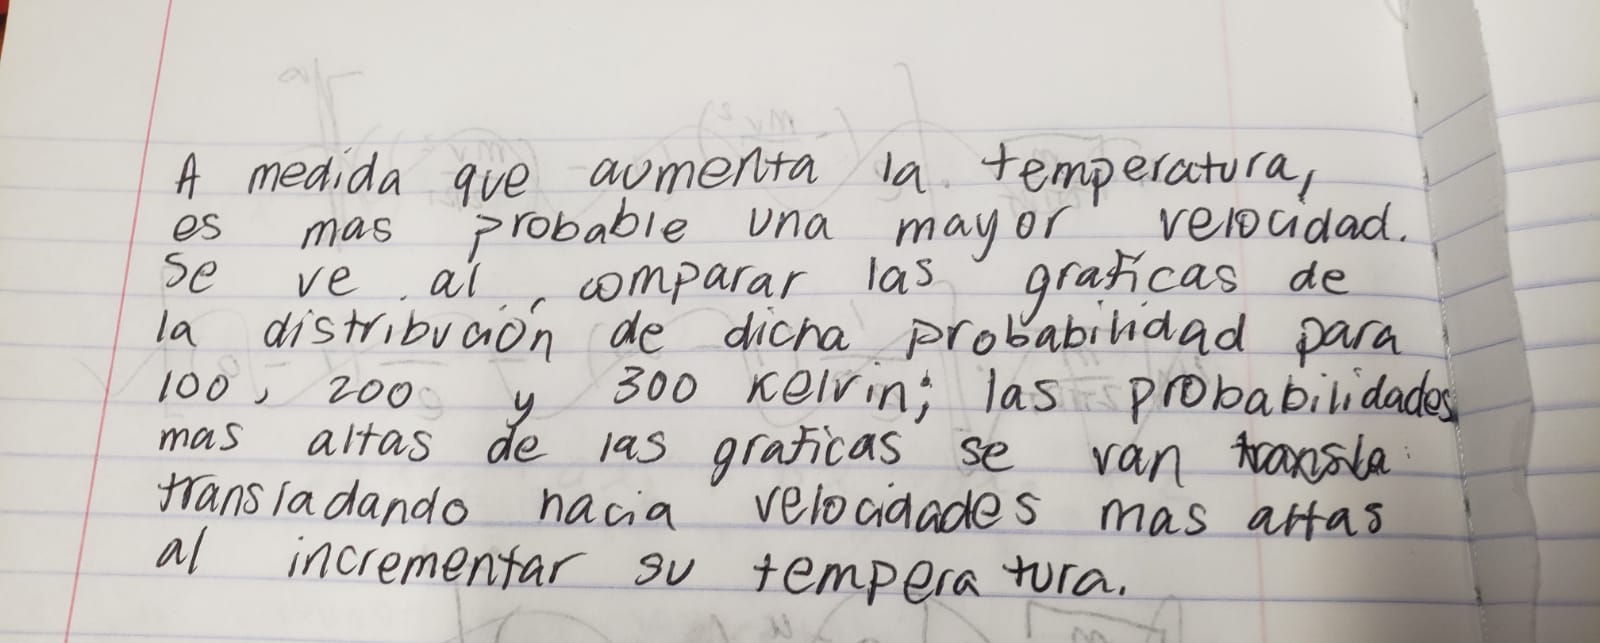 A medida que aumenta la temperatura,
es mas probable una mayor velocidad.
Se ve al comparar las graficas de
la distribución de dicha probabilidad para
100, 200 y 300 Kelvin; las probabilidades
mas altas de las graficas se van transla
transladando hacia velocidades mas altas
al incrementar su temperatura.